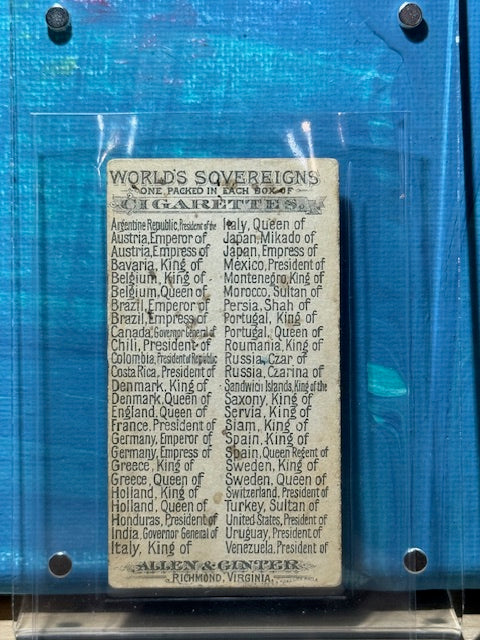 WORLD'S SOVEREIGNS
ONE PACKED IN EACH BOX OF
CIGARETTES.
Argentine Republic, President of the
Austria, Emperor of
Austria, Empress of
Bavaria, King of
Belgium, King of
Belgium, Queen of
Brazil, Emperor of
Brazil, Empress of
Canada, Governor General of
Chili, President of
Colombia, President of Republic
Costa Rica, President of
Denmark, King of
Denmark, Queen of
England, Queen of
France, President of
Germany, Emperor of
Germany, Empress of
Greece, King of
Greece, Queen of
Holland, King of
Holland, Queen of
Honduras, President of
India, Governor General of
Italy, King of
Italy, Queen of
Japan, Mikado of
Japan, Empress of
Mexico, President of
Montenegro, King of
Morocco, Sultan of
Persia, Shah of
Portugal, King of
Portugal, Queen of
Roumania, King of
Russia, Czar of
Russia, Czarina of
Sandwich Islands, King of the
Saxony, King of
Servia, King of
Siam, King of
Spain, King of
Spain, Queen Regent of
Sweden, King of
Sweden, Queen of
Switzerland, President of
Turkey, Sultan of
United-States, President of
Uruguay, President of
Venezuela, President of
ALLEN & GINTER
RICHMOND, VIRGINIA.